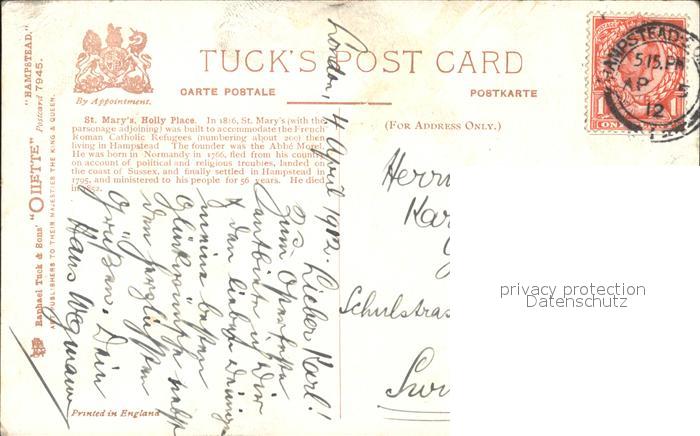 "HAMPSTEAD."
Postcard 7945.
Raphael Tuck & Sons' "OILETTE"
ART PUBLISHERS TO THEIR MAJESTIES THE KING & QUEEN.
By Appointment.
TUCK'S POST CARD
CARTE POSTALE
POSTKARTE
(FOR ADDRESS ONLY.)
St. Mary's, Holly Place. In 1816, St. Mary's (with the
parsonage adjoining) was built to accommodate the French
Roman Catholic Refugees (numbering about 200) then
living in Hampstead The founder was the Abbé Morel.
He was born in Normandy in 1766, fled from his country
on account of political and religious troubles, landed on
the coast of Sussex, and finally settled in Hampstead in
1795, and ministered to his people for 56 years. He died
in 1852.
London, 4 April 1912.
Lieber Karl!
Zum Osterfeste
entbiete ich Dir
& den lieben Deinigen
meine besten
Glückwünsche nebst
den herzlichsten
Grüßen. Dein
Hans Wegmann
Printed in England
HAMPSTEAD
5.15.PM
AP 5
12
Herrn
Kar
Schulstras
privacy protection
Datenschutz